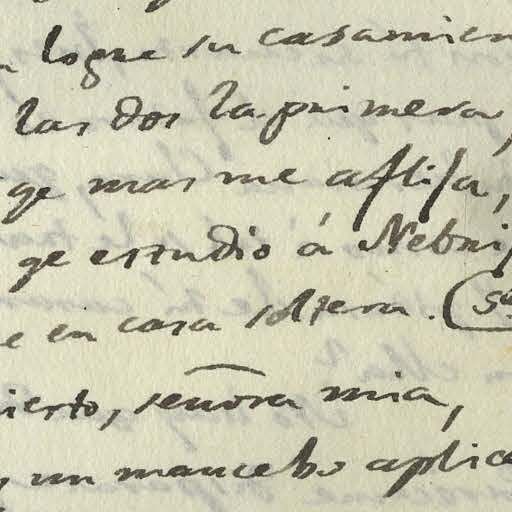 logre su casamien
las dos la primera,
qe mas me aflija,
qe estudio á Nebri
e en casa soltera. (Sa
ierto, señora mia,
un mancebo aplica